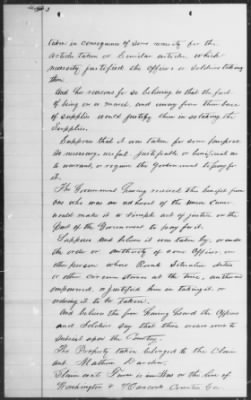 taken in consequence of some necessity for the
article taken or similar article which
necessity justified the officer or soldiers taking
them.
And the reasons for so believing is that the fact
of being on a march and away from their base
of supplies would justify them in so taking the
Supplies.
Suppose that it was taken for some purpose
so necessary, useful, justifiable or beneficial as
to warrant, or require the Government to pay for
it.
The Government having received the benefit from
one who was an adherent of the Union Cause
would make it a simple act of justice on the
part of the Government to pay for it.
Suppose and believe it was taken by, or under
the order or authority of some Officer, or
other person whose Rank Situation Duties
or other circumstances at the time, authorized
empowered, or justified him in taking it or
ordering it to be taken.
And believe this from having heard the Officers
and Soldiers say that their orders were to
subsist upon the Country.
The Property taken belonged to the Claim
ant
Claimants Farm is on the line of
Washington & Hancock Counties Ga.